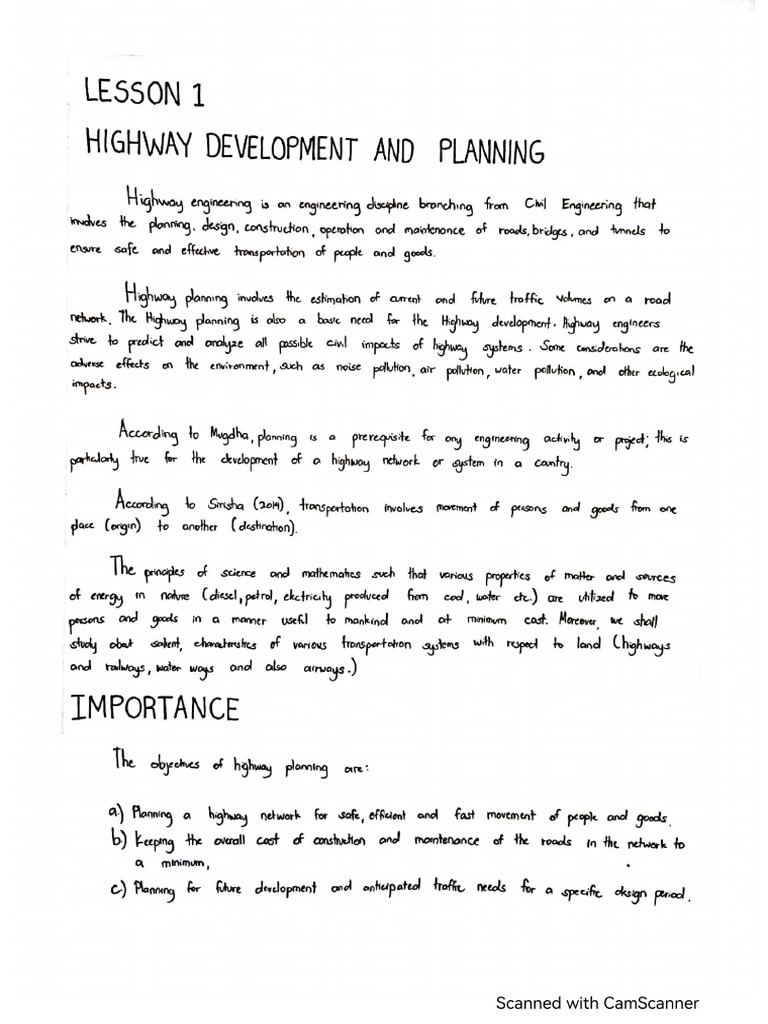 LESSON 1
HIGHWAY DEVELOPMENT AND PLANNING
Highway engineering is an engineering discipline branching from Civil Engineering that
involves the planning, design, construction, operation and maintenance of roads, bridges, and tunnels to
ensure safe and effective transportation of people and goods.
Highway planning involves the estimation of current and future traffic volumes on a road
network. The Highway planning is also a basic need for the Highway development. Highway engineers
strive to predict and analyze all possible civil impacts of highway systems. Some considerations are the
adverse effects on the environment, such as noise pollution, air pollution, water pollution, and other ecological
impacts.
According to Mugdha, planning is a prerequisite for any engineering activity or project; this is
particularly true for the development of a highway network or system in a country.
According to Sirisha (2014), transportation involves movement of persons and goods from one
place (origin) to another (destination).
The principles of science and mathematics such that various properties of matter and sources
of energy in nature (diesel, petrol, electricity produced from coal, water etc.) are utilized to move
persons and goods in a manner useful to mankind and at minimum cost. Moreover, we shall
study about salient, characteristics of various transportation systems with respect to land (highways
and railways, water ways and also airways.)
IMPORTANCE
The objectives of highway planning are:
a.) Planning a highway network for safe, efficient and fast movement of people and goods.
b.) Keeping the overall cost of construction and maintenance of the roads in the network to
a minimum,
c.) Planning for future development and anticipated traffic needs for a specific design period.
Scanned with CamScanner